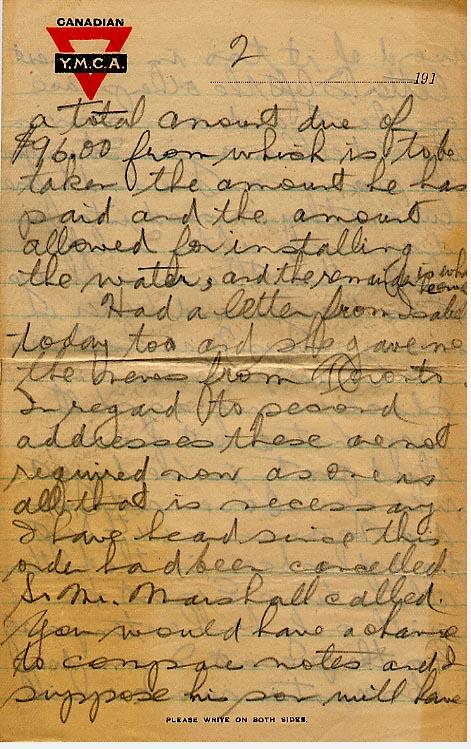 CANADIAN
Y.M.C.A.
2
191
a total amount due of
$96.00 from which is to be
taken the amount he has
paid and the amount
allowed for installing
the water, and the remainder is wh
Had a letter from Isabel
today too and she gave me
the news from Toronto
In regard to second
addresses these are not
required now as one is
all that is necessary.
I have heard since this
order had been cancelled
So Mr. Marshall called.
You would have a chance
to compare notes and I
suppose his son will have
PLEASE WRITE ON BOTH SIDES.